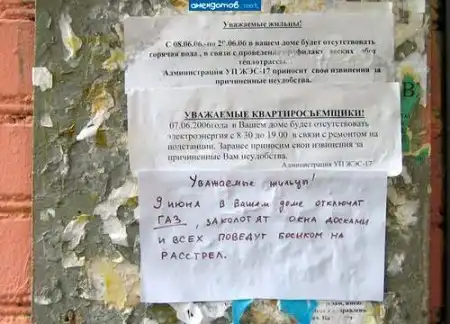 анекдотов.net
Уважаемые жильцы!
С 08.06.06.-по 2 .06.06 в вашем доме будет отсутствовать
горячая вода , в связи с проведением профилактических
теплотрассы.
Администрация УП ЖЭС-17 приносит свои извинения за
причиненные неудобства.
УВАЖАЕМЫЕ КВАРТИРОСЪЕМЩИКИ!
07.06.2006года в Вашем доме будет отсутствовать
электроэнергия с 8-30 до 19.00 в связи с ремонтом на
подстанции. Заранее приносим свои извинения за
причиненные Вам неудобства.
Администрация УП ЖЭС-17
Уважаемые жильцы!
9 июня в Вашем доме отключат
ГАЗ, заколотят окна досками
и всех поведут босиком на
расстрел.